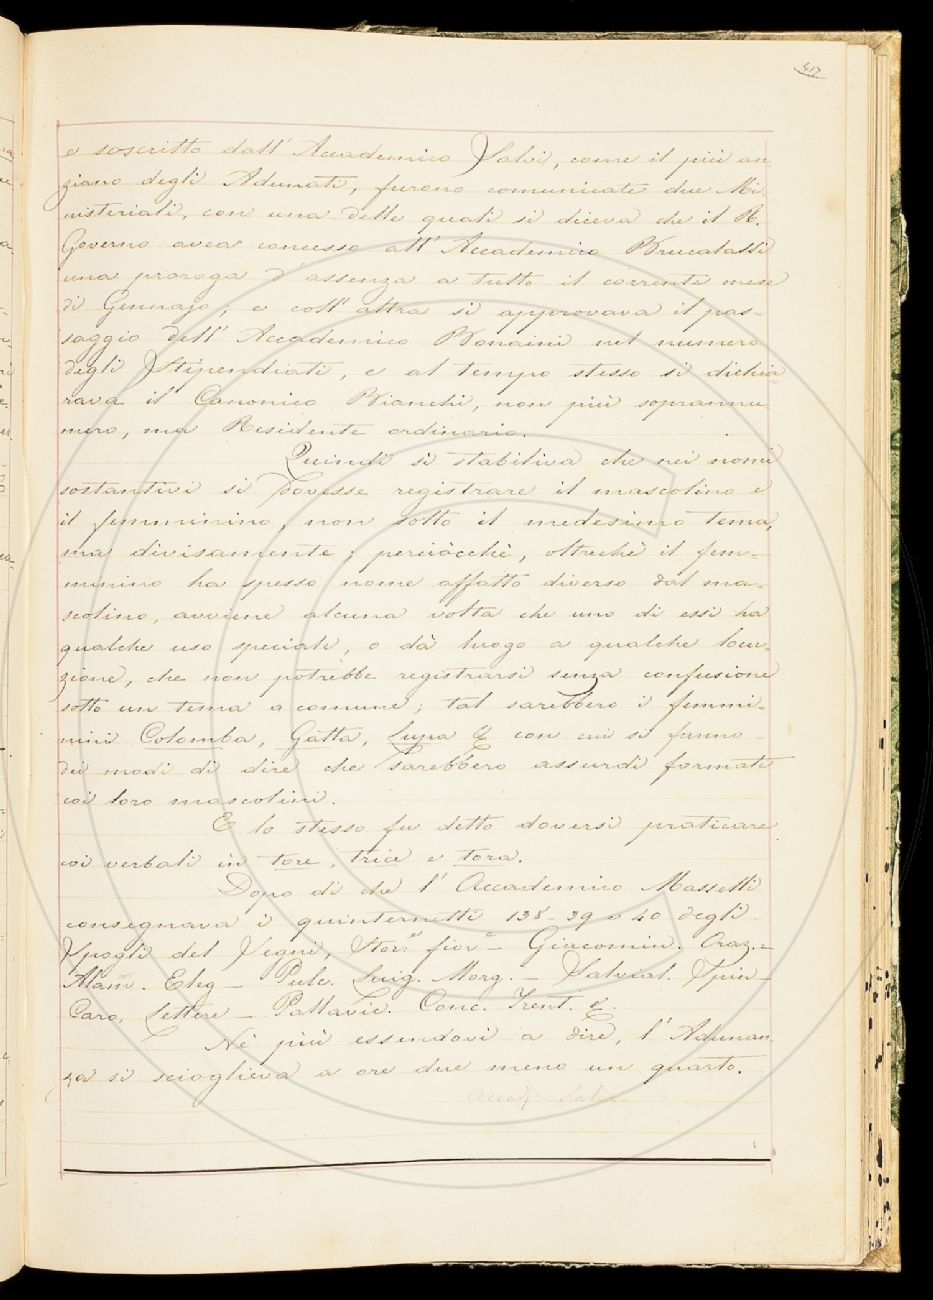 417
e soscritto dall' Accademico Salvi, come il più an
ziano degli Adunati, furono comunicate due Mi-
nisteriali, con una delle quali si diceva che il R.
Governo avea concesso all' Accademico Brucalassi
una proroga d'assenza a tutto il corrente mese
di Gennajo; e coll' altra si approvava il pas-
saggio dell' Accademico Bonaini nel numero
degli Stipendiati, e al tempo stesso si dichia=
rava il Canonico Bianchi, non più soprannu=
mero, ma Residente ordinario.
Quindi si stabiliva che nei nomi
sostantivi si dovesse registrare il mascolino e
il femminino, non sotto il medesimo tema,
ma divisamente; perciòcchè, oltrechè il fem=
minino ha spesso nome affatto diverso dal ma=
scolino, avviene alcuna volta che uno di essi ha
qualche uso speciale, o dà luogo a qualche locu=
zione, che non potrebbe registrarsi senza confusione
sotto un tema a comune; tal sarebbero i femmi=
nini Colomba, Gatta, Lupa & con cui si fanno
dei modi di dire che sarebbero assurdi formati
coi loro mascolini.
E lo stesso fu detto doversi praticare
coi verbali in tore, trice e tora.
Dopo di che l' Accademico Masselli
consegnava i quinternetti 138-39 e 40 degli
Spogli del Segni, Stor. fior. - Giacomin. Oraz.=
Alam. Eleg - Pulc. Luig. Morg - Salviat. Spin-
Caro, Lettere - Pallavic. Conc. Trent. &
Nè più essendovi a dire, l' Adunan
za si scioglieva a ore due meno un quarto.